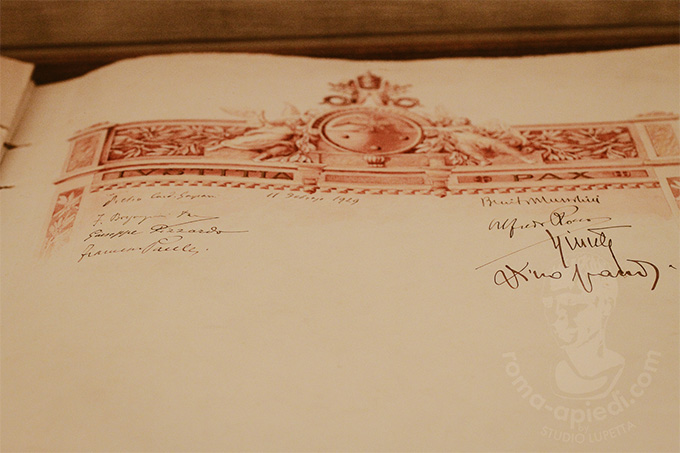 IVSTITIA PAX
Pietro Card. Gasparri 11 Febbraio 1929
Benito Mussolini
Alfredo Rocco
Giuseppe Pizzardo
Francesco Pacelli.
Dino Grandi
roma-apiedi.com
BY
STUDIO LUPETTA